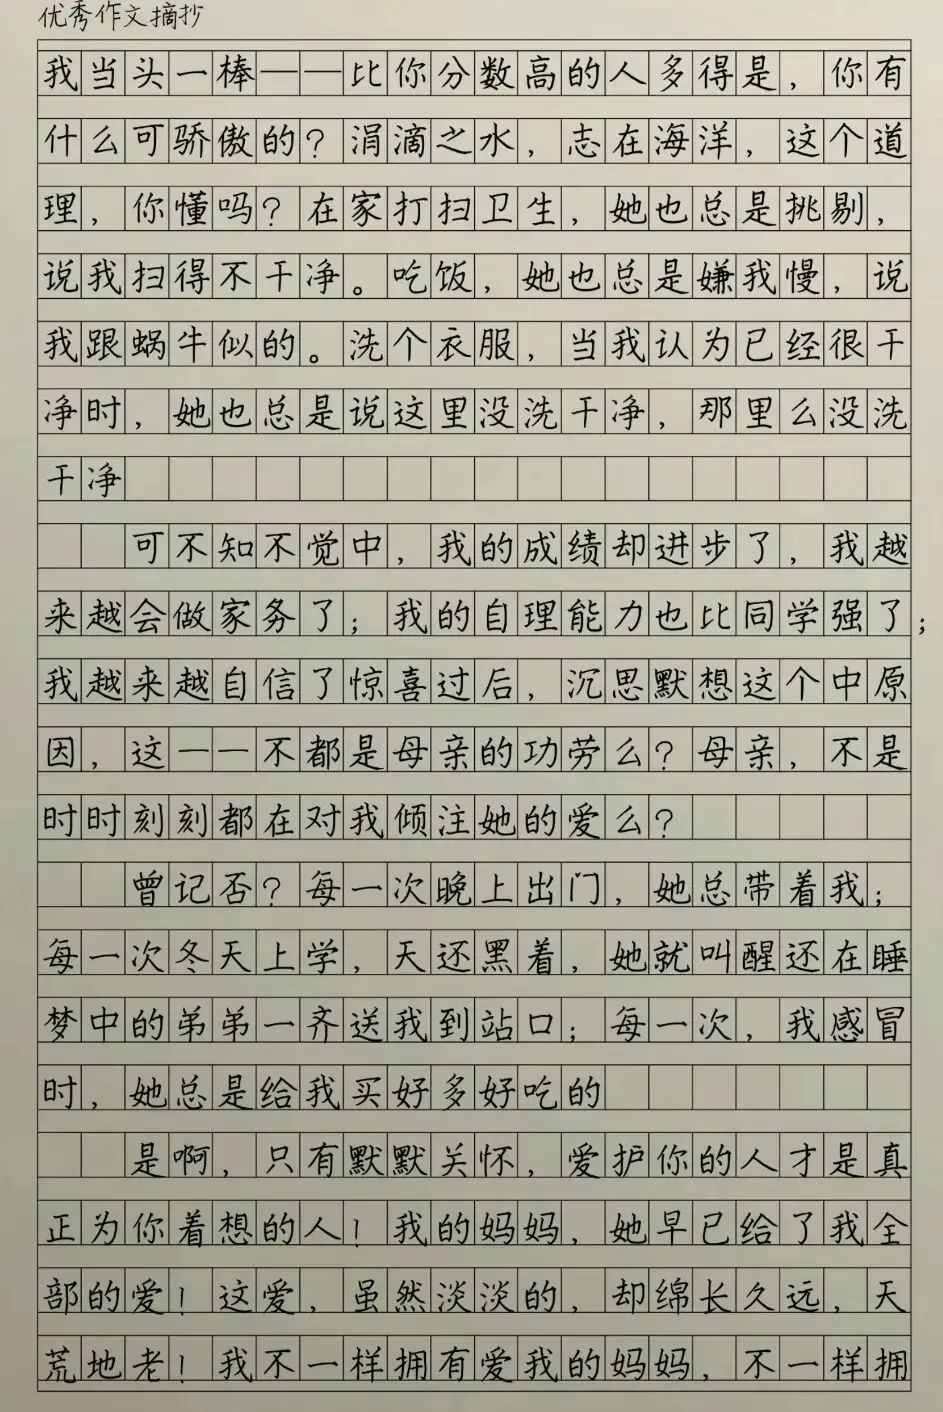 优秀作文摘抄
我当头一棒——比你分数高的人多得是，你有
什么可骄傲的？涓滴之水，志在海洋，这个道
理，你懂吗？在家打扫卫生，她也总是挑剔，
说我扫得不干净。吃饭，她也总是嫌我慢，说
我跟蜗牛似的。洗个衣服，当我认为已经很干
净时，她也总是说这里没洗干净，那里么没洗
干净
可不知不觉中，我的成绩却进步了，我越
来越会做家务了；我的自理能力也比同学强了；
我越来越自信了惊喜过后，沉思默想这个中原
因，这一一不都是母亲的功劳么？母亲，不是
时时刻刻都在对我倾注她的爱么？
曾记否？每一次晚上出门，她总带着我；
每一次冬天上学，天还黑着，她就叫醒还在睡
梦中的弟弟一齐送我到站口；每一次，我感冒
时，她总是给我买好多好吃的
是啊，只有默默关怀，爱护你的人才是真
正为你着想的人！我的妈妈，她早已给了我全
部的爱！这爱，虽然淡淡的，却绵长久远，天
荒地老！我不一样拥有爱我的妈妈，不一样拥